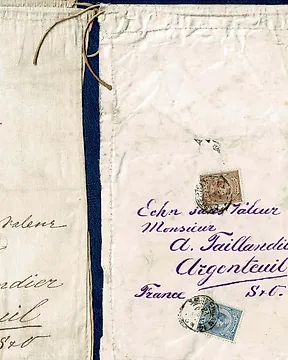 Valeur
ndier
uil
S&O.
Echn sans Valeur
Monsieur
A. Taillandie
Argenteuil
France S&O.